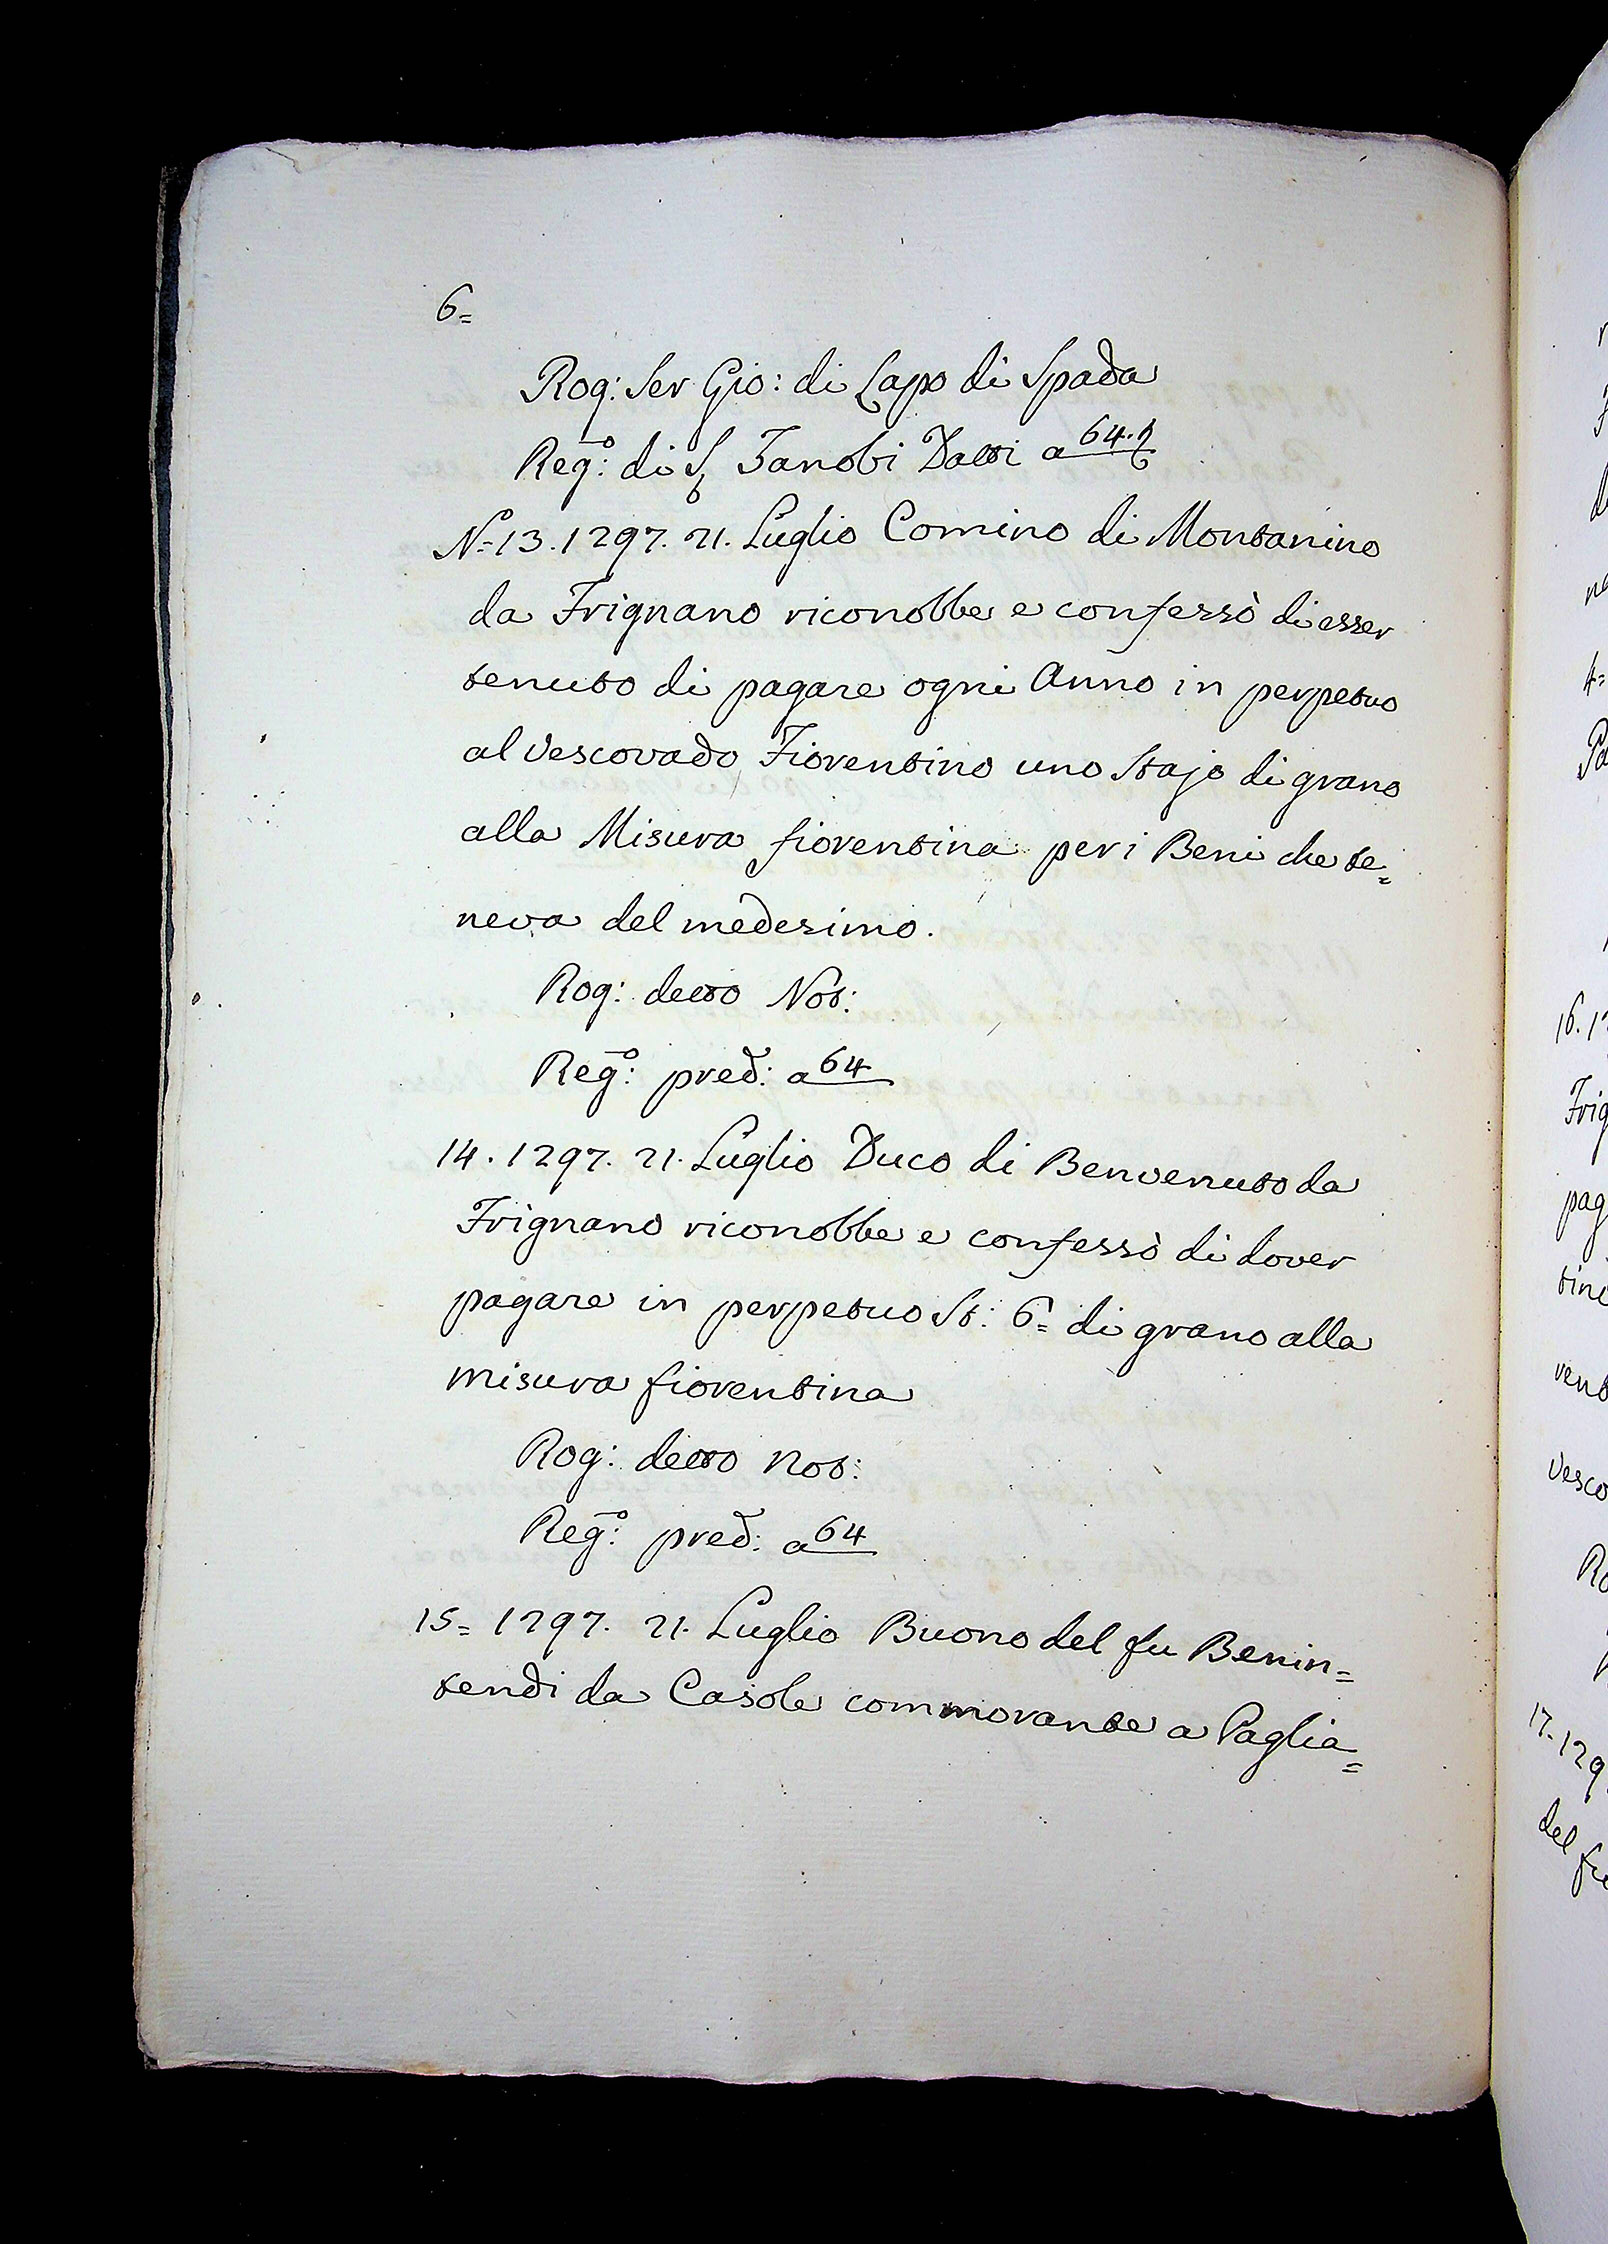 6=
Rog: Ser Gio: di Lapo di Spada
Reg:º di S. Zanobi Datti a 64.
Nº 13. 1297. 21. Luglio Comino di Montanino
da Frignano riconobbe e confessò di esser
tenuto di pagare ogni Anno in perpetuo
al Vescovado Fiorentino uno Stajo di grano
alla Misura fiorentina per i Beni che te=
neva del medesimo.
Rog: detto Not:
Reg:º pred: a 64
14. 1297. 21. Luglio Duco di Benvenuto da
Frignano riconobbe e confessò di dover
pagare in perpetuo St: 6= di grano alla
misura fiorentina
Rog: detto Not:
Reg:º pred: a 64
15= 1297. 21. Luglio Buono del fu Benin=
tendi da Casole commorante a Paglia=
16. 12
Frig
pag
tino
vent
Vesco
Ro
17. 129
del fu